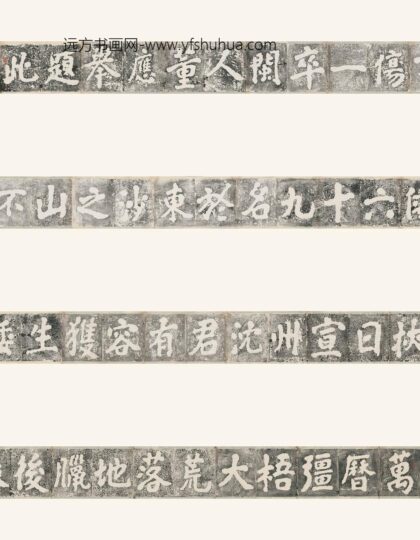 远方书画网-www.yfshuhua.com
傷一卒閩人董應舉題此
六十九名於東沙之山不
挾日宣州沈君有容獲生倭
萬曆彊梧大荒落地臘後